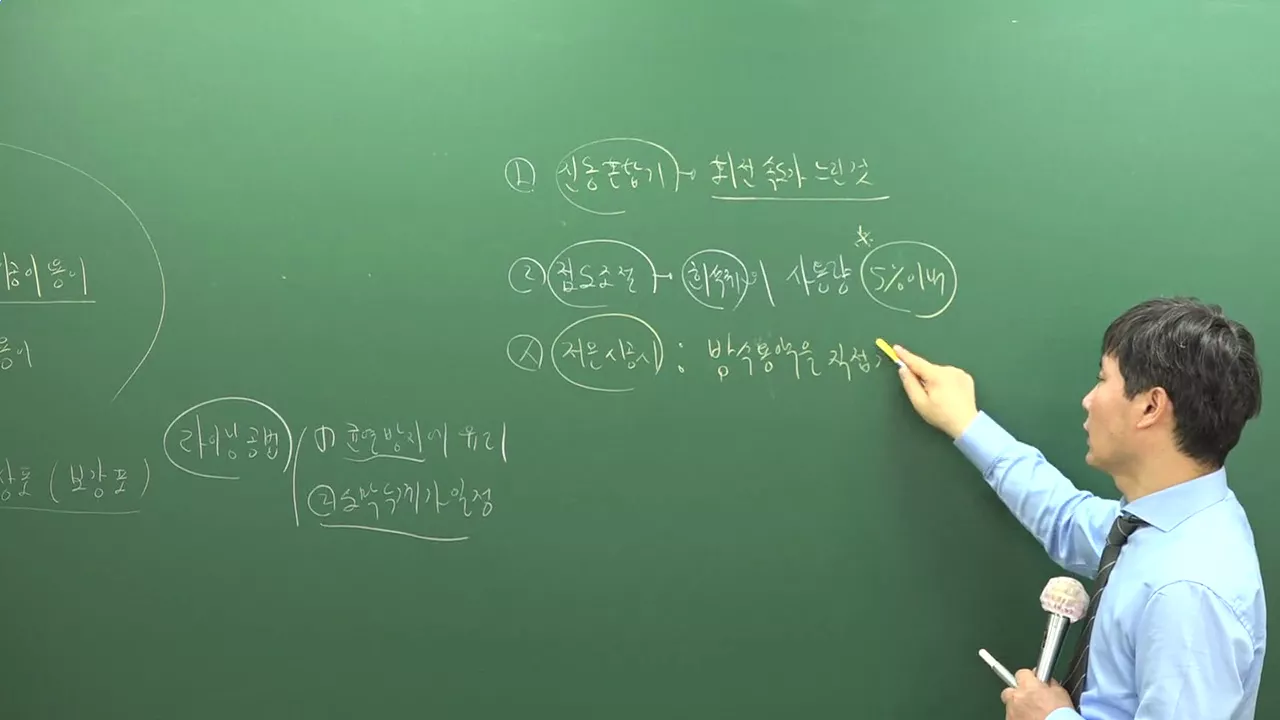 ① 전동혼합기 → 회전 속도가 느린것
② 점도조절 → 희석제의 사용량 5%이내
③ 저온시공시 : 방수용액을 직접
시공이 용이
용이
라이닝공법 ① 균열방지에 유리
② 도막두께가 일정
(보강포)